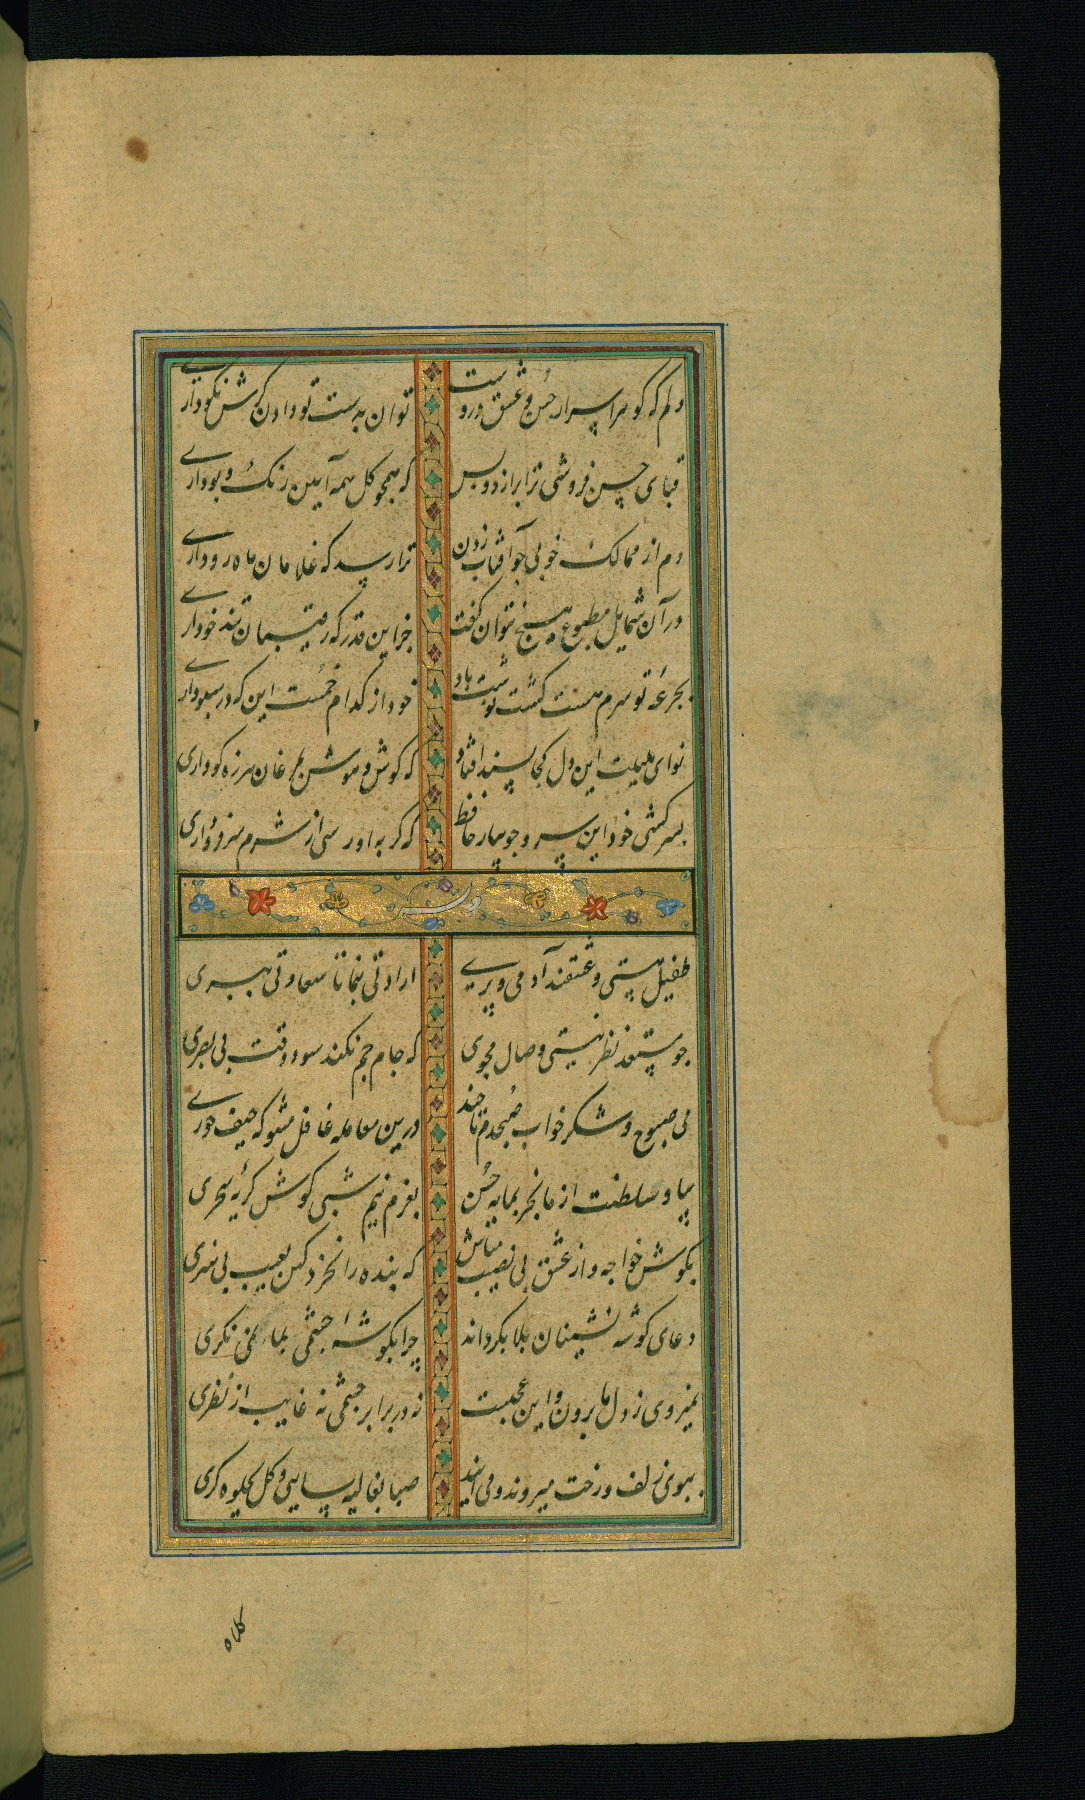 دلم که گوهر اسرار حسن و عشق دروست
توان به دست تو دادن گرش نکو داری
قبای حسن فروشی ترا برازد و بس
که همچو کل همه آیین رنک و بو داری
دم از ممالک خوبی چو آفتاب زدن
ترا رسد که غلامان ماه رو داری
در آن شمایل مطبوع هیچ نتوان کفت
جز این قدر که رقیبان تند خو داری
بجرعهٔ تو سرم مست کشت نوشت باد
خود از کدام خمست این که در سبو داری
نوای بلبلت این دل کجا پسند افتاد
که کوش و هوش بمرغان هرزه کو داری
بسرکشی خود این سرو جویبار حافظ
که کر به او رسی از شرم سر فرو داری
وله
طفیل هستی و عشقند آدمی و پری
ارادتی بنما تا سعادتی ببری
چو مستعد نظر نیستی وصال مجوی
که جام جم نکند سود وقت بی بصری
می صبوح و شکر خواب صبحدم تا چند
درین معامله غافل مشو که حیف خوری
بیا و سلطنت از ما بخر بمایه حسن
بعزم نیم شبی کوش کریه سحری
بکوش خواجه و از عشق بی نصیب مباش
که بنده را نخرد کس بعیب بی هنری
دعای کوشه نشینان بلا بکرداند
چرا بکوشهٔ چشمی بما نمی نکری
نمیروی ز دل ما برون و این عجبست
نه در برابر چشمی نه غایب از نظری
ببوی زلف و رخت میروند و می آیند
صبا بغالیه سایی و کل بجلوه کری
کلاه